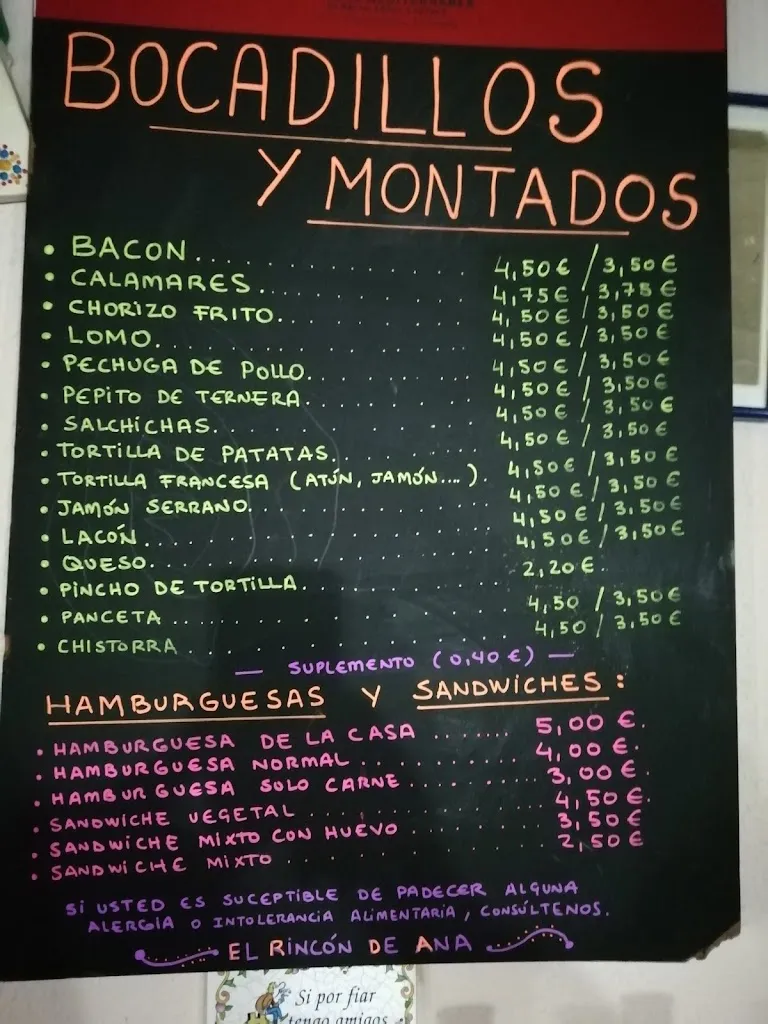 BOCADILLOS
Y MONTADOS
• BACON.......... 4,50 € / 3,50 €
• CALAMARES.......... 4,75 € / 3,75 €
• CHORIZO FRITO.......... 4,50 € / 3,50 €
• LOMO.......... 4,50 € / 3,50 €
• PECHUGA DE POLLO.......... 4,50 € / 3,50 €
• PEPITO DE TERNERA.......... 4,50 € / 3,50 €
• SALCHICHAS.......... 4,50 € / 3,50 €
• TORTILLA DE PATATAS.......... 4,50 € / 3,50 €
• TORTILLA FRANCESA (ATÚN, JAMÓN....). 4,50 € / 3,50 €
• JAMÓN SERRANO.......... 4,50 € / 3,50 €
• LACÓN.......... 4,50 € / 3,50 €
• QUESO.......... 4,50 € / 3,50 €
• PINCHO DE TORTILLA.......... 2,20 €.
• PANCETA.......... 4,50 / 3,50 €
• CHISTORRA.......... 4,50 / 3,50 €
— SUPLEMENTO (0,40 €) —
HAMBURGUESAS Y SANDWICHES:
• HAMBURGUESA DE LA CASA ....... 5,00 €.
• HAMBURGUESA NORMAL.......... 4,00 €.
• HAMBURGUESA SOLO CARNE.......... 3,00 €.
• SANDWICHE VEGETAL.......... 4,50 €.
• SANDWICHE MIXTO CON HUEVO.......... 3,50 €
• SANDWICHE MIXTO.......... 2,50 €
SI USTED ES SUCEPTIBLE DE PADECER ALGUNA
ALERGIA O INTOLERANCIA ALIMENTARIA, CONSÚLTENOS.
EL RINCÓN DE ANA
Si por fiar
tengo amigos